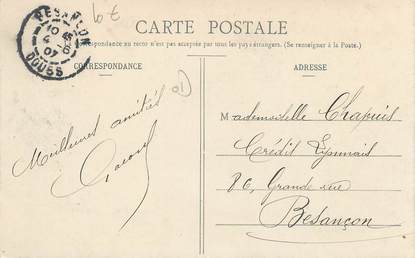 CARTE POSTALE
Correspondance au recto n'est pas acceptée par tous les pays étrangers. (Se renseigner à la Poste.)
CORRESPONDANCE
ADRESSE
BESANÇON
10
4
07
DOUBS
Meilleures amitiés
Mademoiselle Chapuis
Crédit Lyonnais
86, Grande rue
Besançon